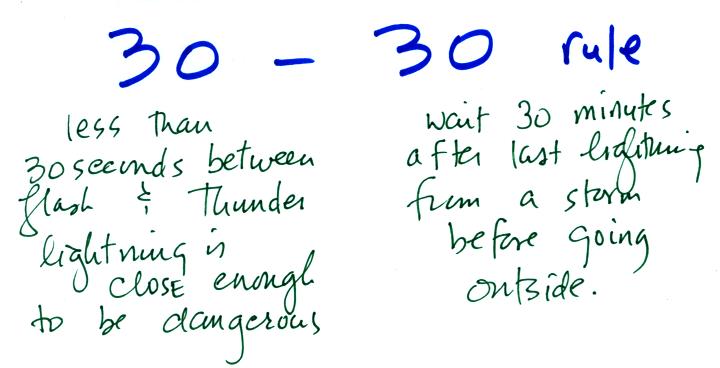 30 - 30 rule
less than
30 seconds between
flash & Thunder
lightning is
close enough
to be dangerous
wait 30 minutes
after last lightning
from a storm
before going
outside.